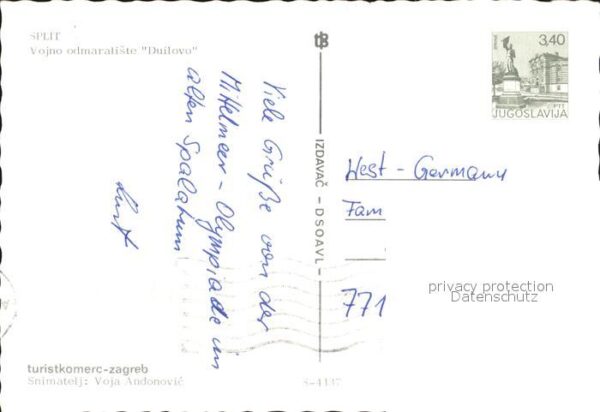 SPLIT
Vojno odmaralište "Duilovo"
Viele Grüße von der
Mittelmeer - Olympiade im
alten Spalatum
IZDAVAČ - DSOAVL -
3,40
PTT
JUGOSLAVIJA
West - Germany
Fam
771
privacy protection
Datenschutz
turistkomerc-zagreb
Snimatelj: Voja Anđonović
S-4137